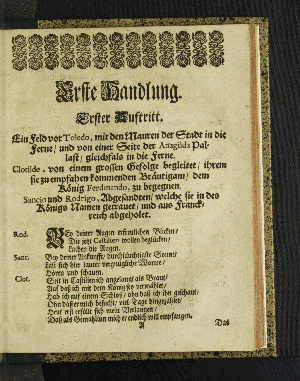 Erste Handlung.
Erster Auftritt.
Ein Feld vor Toledo, mit den Mauren der Stadt in die
Ferne/ und von einer Seite der Atagilda Pal-
last/ gleichfals in die Ferne.
Clotilde, von einem grossen Gefolge begleitet/ ihrem
sie zu empfahen kommenden Bräutigam/ dem
König Ferdinando, zu begegnen.
Sancio und Rodrigo, Abgesandten/ welche sie in des
Königs Namen getrauet/ und aus Franck-
reich abgeholet.
Rod. BEy deiner Augen erfreulichen Blicken/
Die jetzt Castilien wollen beglücken/
Lachen die Augen.
Sanc. Bey deiner Ankunfft/ durchläuchtigste Sonne/
Läst sich hier lauter vergnügliche Wonne/
Hören und schauen.
Clot. Seit in Castilien ich angelangt als Braut/
Auf daß ich mit dem König sey vermählet/
Hab ich auf einem Schloß/ ohn daß ich ihn geschaut/
Ohn daß er mich besucht/ viel Tage hingezählet/
Heut erst erfüllt sich mein Verlangen/
Daß als Gemahlinn mich er endlich will empfangen.
A Das